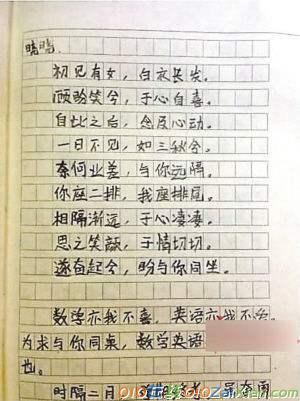 晓晓.
初见有女，白衣长发。
顾盼笑兮，于心自喜。
自此之后，念及心动。
一日不见，如三秋兮。
奈何业差，与你远隔。
你座二排，我座排尾。
相隔渐远，于心凄凄。
思之笑颜，于情切切。
遂奋起兮，盼与你同坐。
数学亦我不喜，英语亦我不
为求与你同桌，数学英语
也。
时隔二月